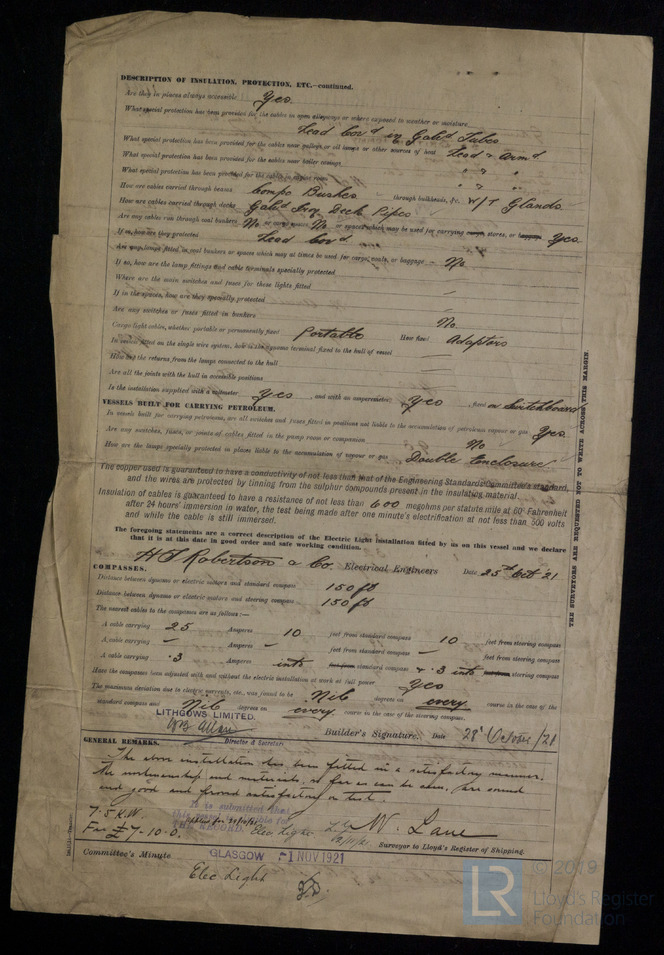 DESCRIPTION OF INSULATION, PROTECTION, ETC.—continued.
Are they in places always accessible Yes
What special protection has been provided for the cables in open alleyways or where exposed to weather or moisture
Lead Cov'd in Galv'd Tubes
What special protection has been provided for the cables near galleys or oil lamps or other sources of heat Lead & Arm'd
What special protection has been provided for the cables near boiler casings " " "
What special protection has been provided for the cables in engine room " " "
How are cables carried through beams Compo Bushes through bulkheads, &c. W/T Glands
How are cables carried through decks Galv'd Iron Deck Pipes
Are any cables run through coal bunkers No or cargo spaces No or spaces which may be used for carrying cargo, stores, or baggage Yes
If so, how are they protected Lead Cov'd
Are any lamps fitted in coal bunkers or spaces which may at times be used for cargo, coals, or baggage No
If so, how are the lamp fittings and cable terminals specially protected
Where are the main switches and fuses for these lights fitted
If in the spaces, how are they specially protected
Are any switches or fuses fitted in bunkers No
Cargo light cables, whether portable or permanently fixed Portable How fixed Adaptors
In vessels fitted on the single wire system, how is the dynamo terminal fixed to the hull of vessel
How are the returns from the lamps connected to the hull
Are all the joints with the hull in accessible positions
Is the installation supplied with a voltmeter Yes , and with an amperemeter Yes , fixed on Switchboard
VESSELS BUILT FOR CARRYING PETROLEUM.
In vessels built for carrying petroleum, are all switches and fuses fitted in positions not liable to the accumulation of petroleum vapour or gas Yes
Are any switches, fuses, or joints of cables fitted in the pump room or companion No
How are the lamps specially protected in places liable to the accumulation of vapour or gas Double Enclosure
The copper used is guaranteed to have a conductivity of not less than that of the Engineering Standards Committee's standard,
and the wires are protected by tinning from the sulphur compounds present in the insulating material.
Insulation of cables is guaranteed to have a resistance of not less than 600 megohms per statute mile at 60° Fahrenheit
after 24 hours' immersion in water, the test being made after one minute's electrification at not less than 500 volts
and while the cable is still immersed.
The foregoing statements are a correct description of the Electric Light installation fitted by us on this vessel and we declare
that it is at this date in good order and safe working condition.
H J Robertson & Co. Electrical Engineers Date 25th Oct 21
COMPASSES.
Distance between dynamo or electric motors and standard compass 150 ft
Distance between dynamo or electric motors and steering compass 150 ft
The nearest cables to the compasses are as follows:—
A cable carrying 25 Amperes 10 feet from standard compass 10 feet from steering compass
A cable carrying — Amperes — feet from standard compass — feet from steering compass
A cable carrying .3 Amperes into feet from standard compass & .3 into feet from steering compass
Have the compasses been adjusted with and without the electric installation at work at full power Yes
The maximum deviation due to electric currents, etc., was found to be Nil degrees on every course in the case of the
standard compass and Nil degrees on every course in the case of the steering compass.
LITHGOWS LIMITED.
Director & Secretary Builder's Signature. Date 28 October/21
GENERAL REMARKS.
The above installation has been fitted in a satisfactory manner.
The workmanship and materials, so far as can be seen, are sound
and good and proved satisfactory on test.
It is submitted that
this vessel is eligible for
THE RECORD. Elec. Light
7.5 K.W.
Fee £7-10-0.
W. Lane
Surveyor to Lloyd's Register of Shipping.
Committee's Minute GLASGOW -1 NOV 1921
Elec Light
THE SURVEYORS ARE REQUESTED NOT TO WRITE ACROSS THIS MARGIN.
LR
© 2019
Lloyd's Register
Foundation